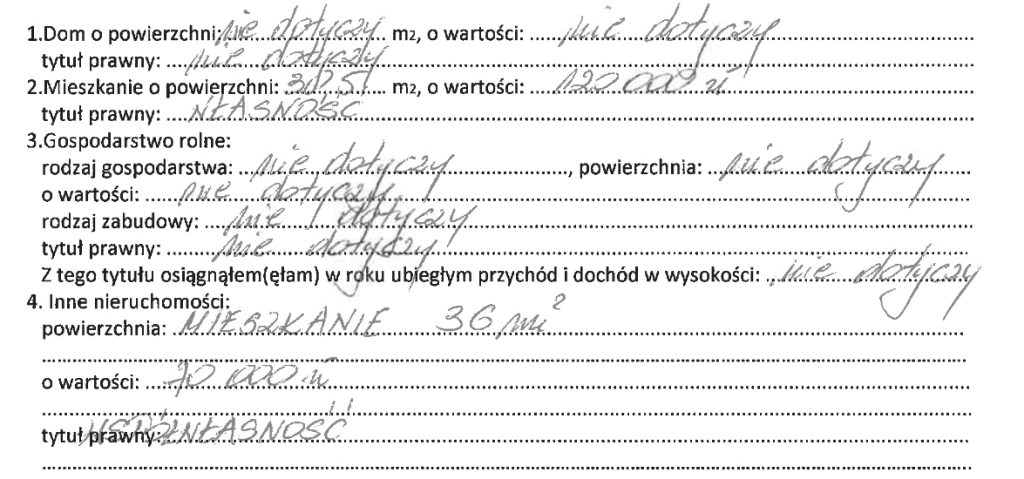 1.Dom o powierzchni: nie dotyczy m2, o wartości: nie dotyczy
tytuł prawny: nie dotyczy
2.Mieszkanie o powierzchni: 37,5 m2, o wartości: 120 000 zł
tytuł prawny: WŁASNOŚĆ
3.Gospodarstwo rolne:
rodzaj gospodarstwa: nie dotyczy, powierzchnia: nie dotyczy
o wartości: nie dotyczy
rodzaj zabudowy: nie dotyczy
tytuł prawny: nie dotyczy
Z tego tytułu osiągnąłem(ęłam) w roku ubiegłym przychód i dochód w wysokości: nie dotyczy
4. Inne nieruchomości:
powierzchnia: MIESZKANIE 36 m²
o wartości: 70 000 zł
tytuł prawny: WSPÓŁWŁASNOŚĆ